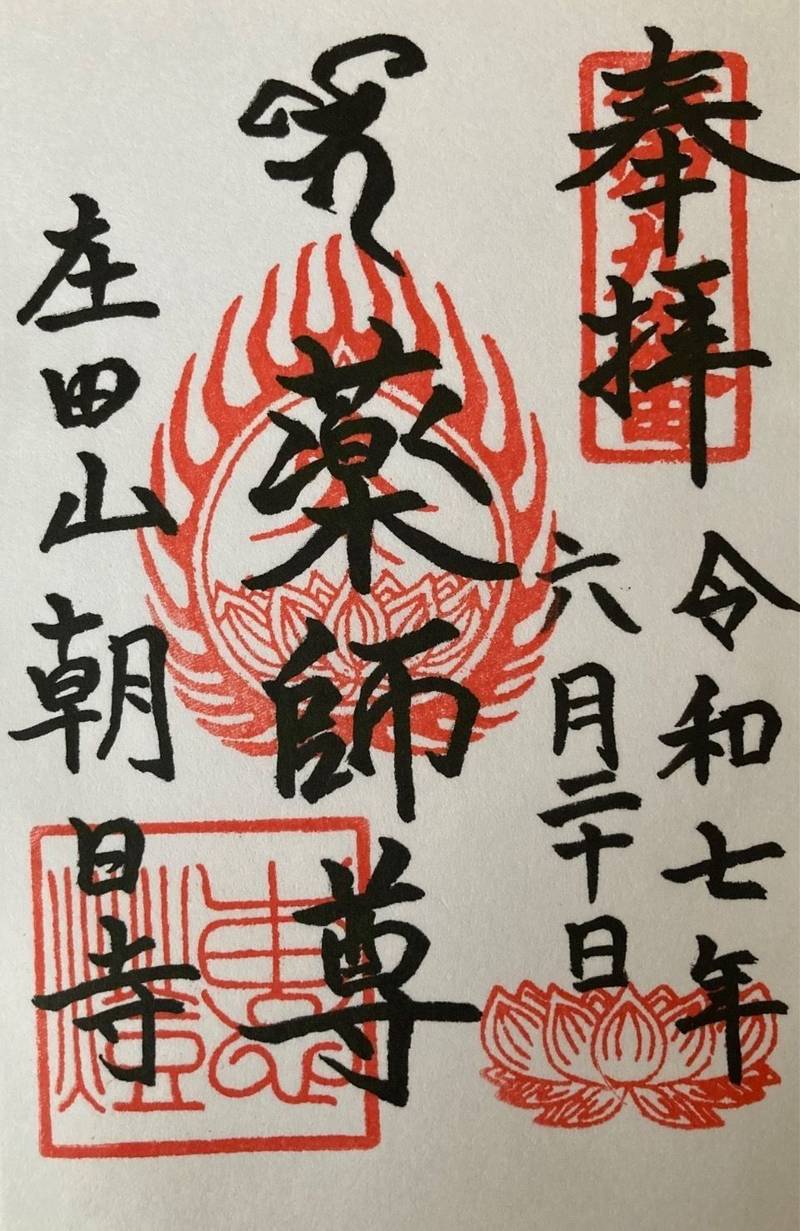 奉拝
令和七年
六月二十日
薬師尊
庄田山朝日寺